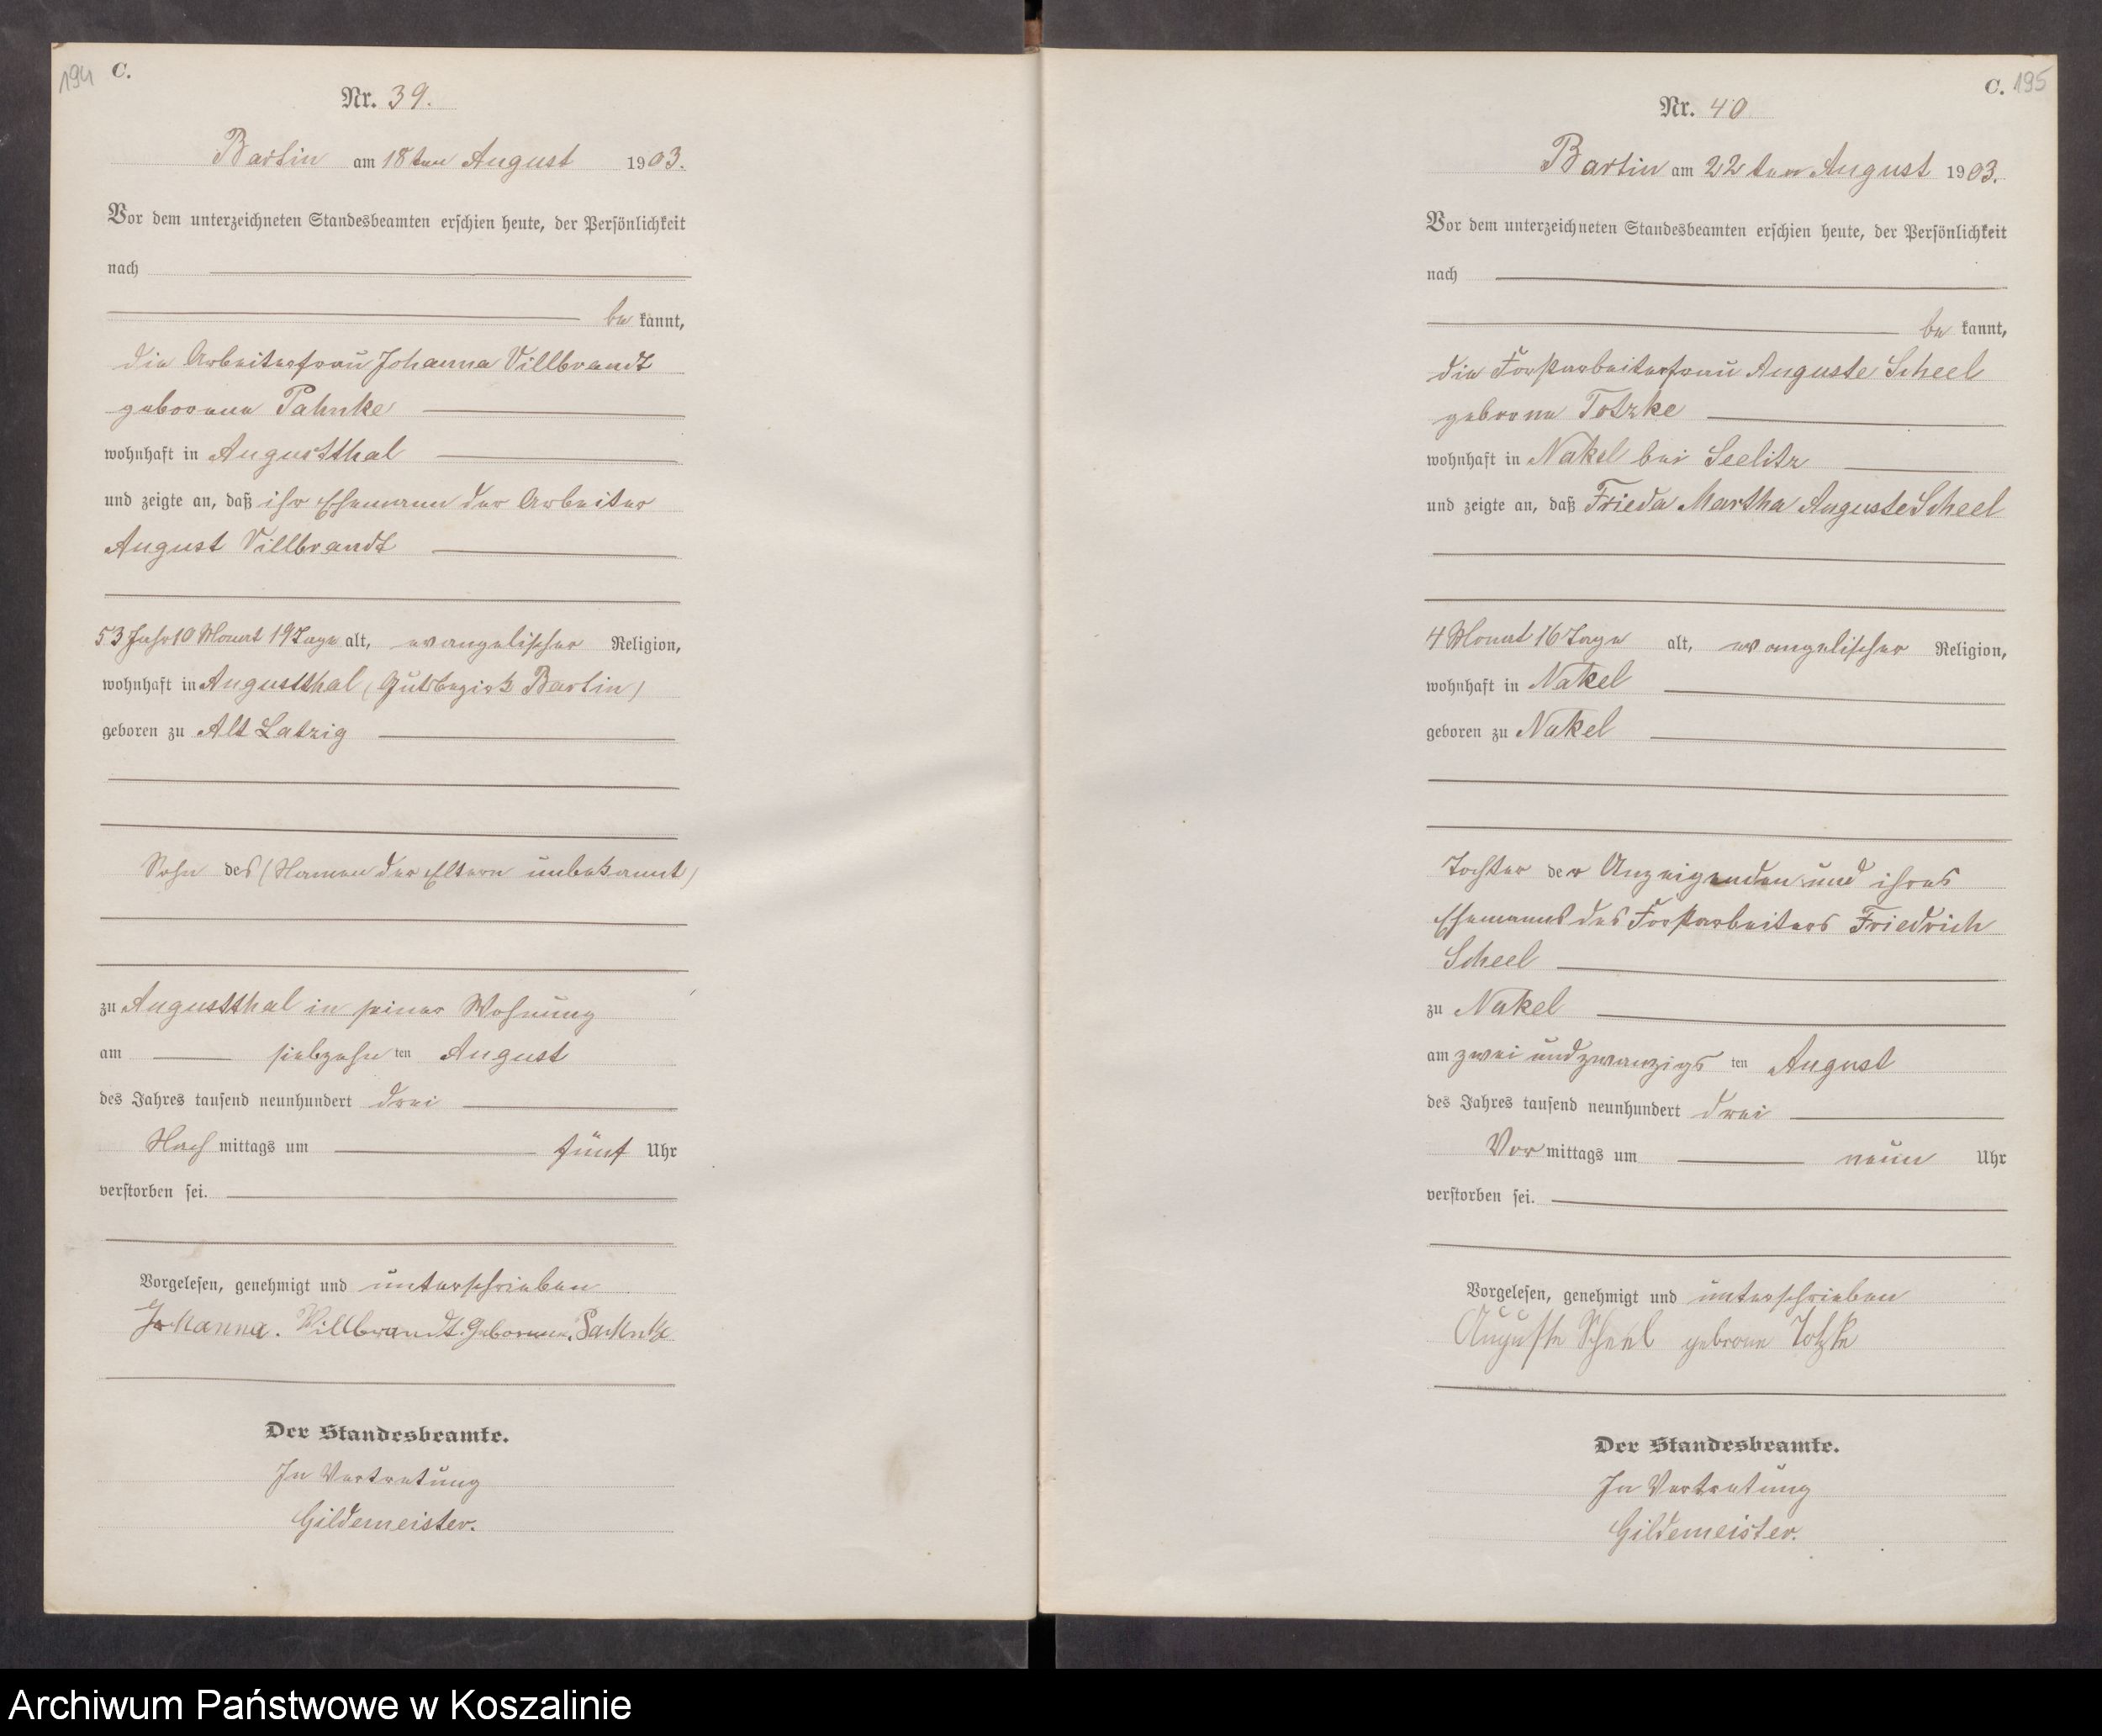 194
C.
Nr. 39.
Bartin am 18ten August 1903.
Vor dem unterzeichneten Standesbeamten erschien heute, der Persönlichkeit
nach
be kannt,
die Arbeiterfrau Johanna Villbrandt
geborene Pahnke
wohnhaft in Augustthal
und zeigte an, daß ihr Ehemann der Arbeiter
August Villbrandt
53 Jahr 10 Monat 19 Tage alt, evangelischer Religion,
wohnhaft in Augustthal (Gutsbezirk Bartin)
geboren zu Alt Latzig
Sohn des (Namen der Eltern unbekannt)
zu Augustthal in seiner Wohnung
am siebzehn ten August
des Jahres tausend neunhundert drei
Nach mittags um fünf Uhr
verstorben sei.
Vorgelesen, genehmigt und unterschrieben
Johanna. Villbrandt. Geborene. Pahnke
Der Standesbeamte.
In Vertretung
Gildemeister.
C. 195
Nr. 40
Bartin am 22ten August 1903.
Vor dem unterzeichneten Standesbeamten erschien heute, der Persönlichkeit
nach
be kannt,
die Forstarbeiterfrau Auguste Scheel
geborne Totzke
wohnhaft in Nakel bei Seelitz
und zeigte an, daß Frieda Martha Auguste Scheel
4 Monat 16 Tage alt, evangelischer Religion,
wohnhaft in Nakel
geboren zu Nakel
Tochter der Anzeigenden und ihres
Ehemanns des Forstarbeiters Friedrich
Scheel
zu Nakel
am zwei und zwanzigs ten August
des Jahres tausend neunhundert drei
Vor mittags um neun Uhr
verstorben sei.
Vorgelesen, genehmigt und unterschrieben
Auguste Scheel geborne Totzke
Der Standesbeamte.
In Vertretung
Gildemeister.
Archiwum Państwowe w Koszalinie